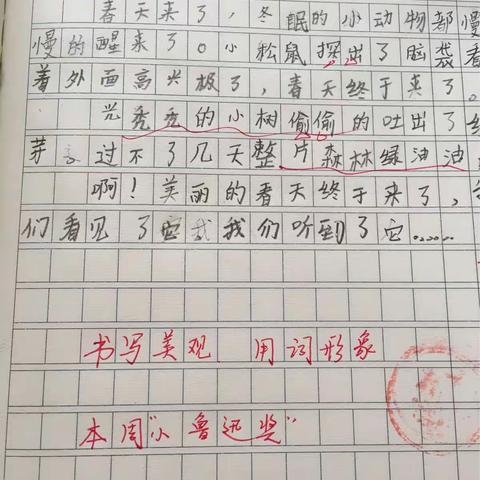 春天来了，冬眠的小动物都慢
慢的醒来了。小松鼠探出了脑袋看
着外面高兴极了，春天终于来了。
光秃秃的小树偷偷的吐出了
芽，过不了几天整片森林绿油油
啊！美丽的春天终于来了，
们看见了它我我们听到了它……
书写美观 用词形象
本周“小鲁迅奖”